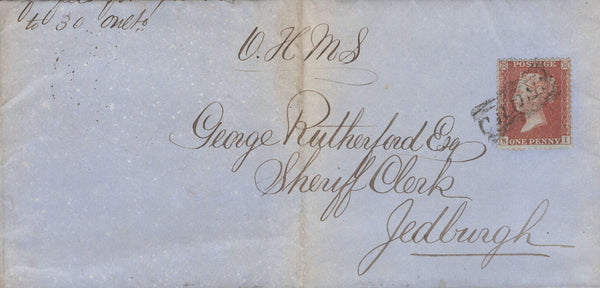 to 30
O. H. M S
George Rutherford Esq
Sheriff Clerk
Jedburgh.
POSTAGE
ONE PENNY